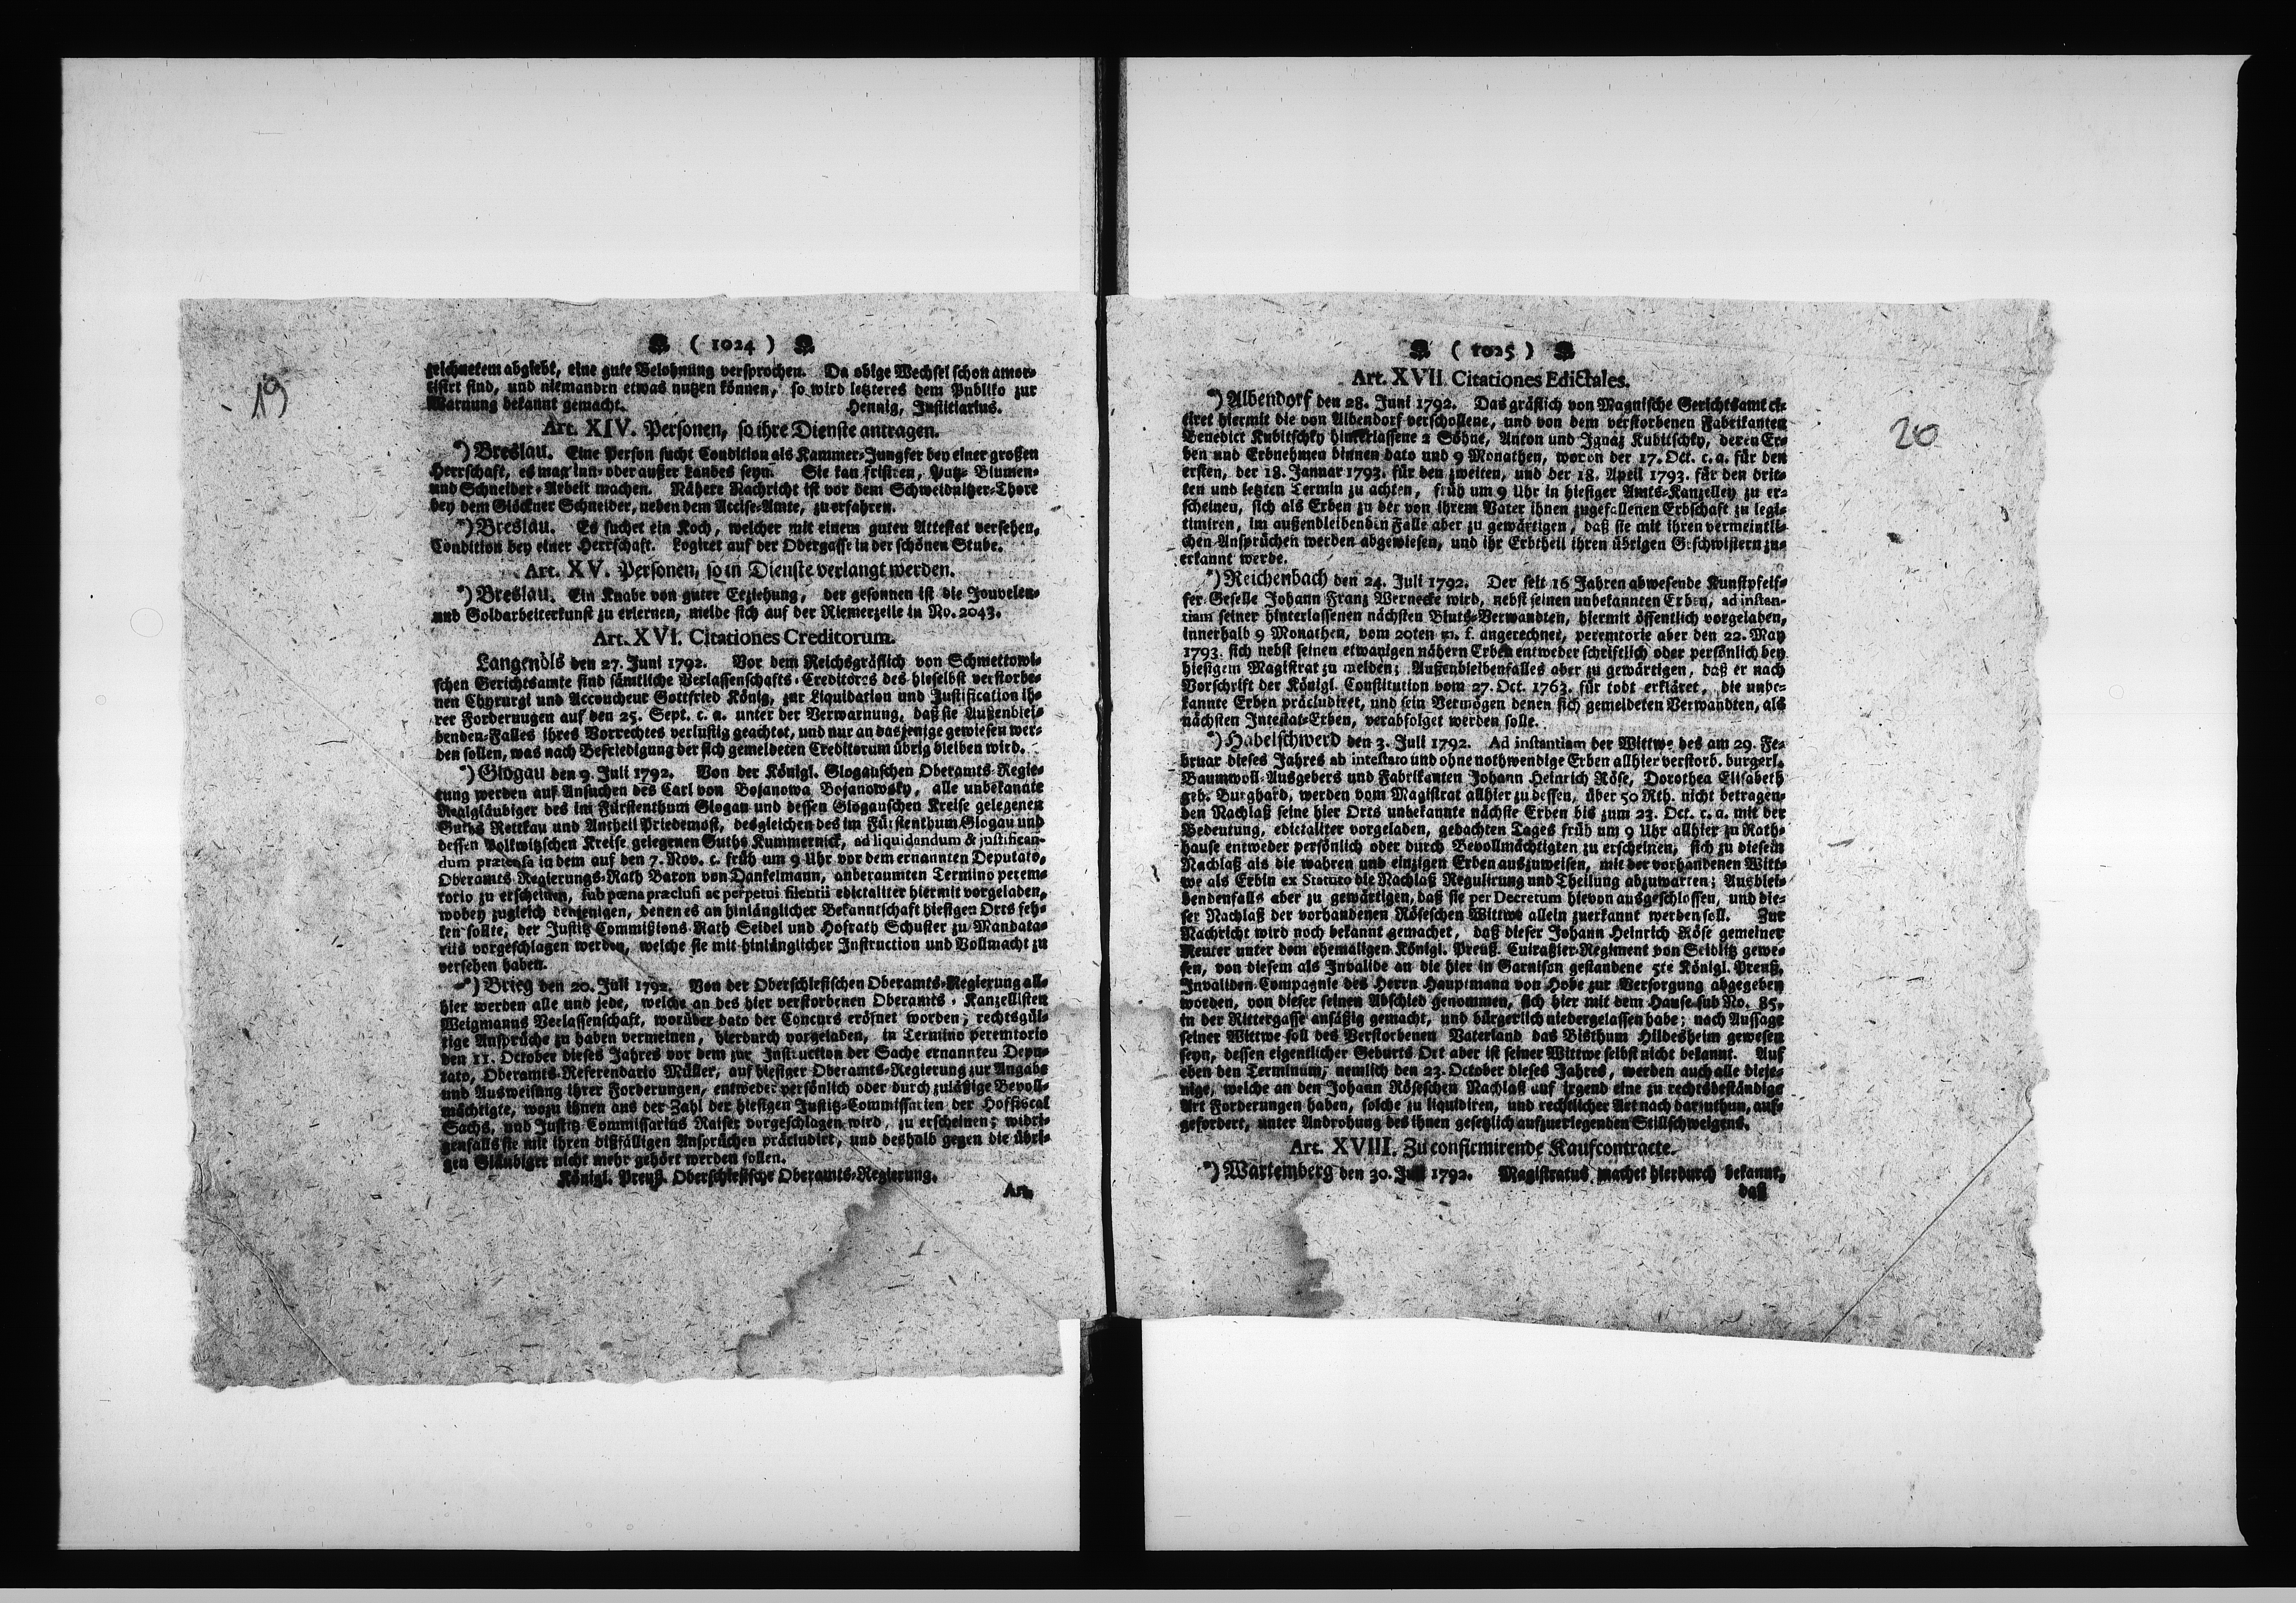 ( 1024 )
19
zeichnetem abgiebt, eine gute Belohnung versprochen. Da obige Wechsel schon amor-
tisirt sind, und niemandrn etwas nutzen können, so wird letzteres dem Publiko zur
Warnung bekannt gemacht. Hennig, Justitiarius.
Art. XIV. Personen, so ihre Dienste antragen.
*) Breslau. Eine Person sucht Condition als Kammer-Jungfer bey einer großen
Herrschaft, es mag inn- oder außer Landes seyn. Sie kan frisiren, Putz- Blumen-
und Schneider-Arbeit machen. Nähere Nachricht ist vor dem Schweidnitzer-Thore
bey dem Glöckner Schneider, neben dem Accise-Amte, zu erfahren.
*) Breslau. Es suchet ein Koch, welcher mit einem guten Attestat versehen,
Condition bey einer Herrschaft. Logiret auf der Odergasse in der schönen Stube.
Art. XV. Personen, so in Dienste verlangt werden.
*) Breslau. Ein Knabe von guter Erziehung, der gesonnen ist die Jouvelen-
und Goldarbeiterkunst zu erlernen, melde sich auf der Riemerzeile in No. 2043.
Art. XVI. Citationes Creditorum.
Langenöls den 27. Juni 1792. Vor dem Reichsgräflich von Schmettowi-
schen Gerichtsamte sind sämtliche Verlassenschafts-Creditores des hieselbst verstorbe-
nen Chyrurgi und Accoucheur Gottfried König, zur Liquidation und Justification ih-
rer Fordernugen auf den 25. Sept. c. a. unter der Verwarnung, daß sie Außenblei-
benden-Falles ihres Vorrechtes verlustig geachtet, und nur an dasjenige gewiesen wer-
den sollen, was nach Befriedigung der sich gemeldeten Creditorum übrig bleiben wird.
*) Glogau den 9. Juli 1792. Von der Königl. Glogauschen Oberamts-Regie-
rung werden auf Ansuchen des Carl von Bojanowa Bojanowsky, alle unbekannte
Realgläubiger des im Fürstenthum Glogau und dessen Glogauschen Kreise gelegenen
Guths Rettkau und Antheil Priedemost, desgleichen des im Fürstenthum Glogau und
dessen Polkwitzschen Kreise gelegenen Guths Kummernick, ad liquidandum & justifican-
dum prætensa in dem auf den 7. Nov. c. früh um 9 Uhr vor dem ernannten Deputato,
Oberamts-Regierungs-Rath Baron von Dankelmann, anberaumten Termino perem-
torio zu erscheinen, sub pœna præclusi ac perpetui silentii edictaliter hiermit vorgeladen,
wobey zugleich denjenigen, denen es an hinlänglicher Bekanntschaft hiesigen Orts feh-
len sollte, der Justitz-Commißions-Rath Seidel und Hofrath Schuster zu Mandata-
riis vorgeschlagen werden, welche sie mit hinlänglicher Instruction und Vollmacht zu
versehen haben.
*) Brieg den 20. Juli 1792. Von der Oberschlesischen Oberamts-Regierung all-
hier werden alle und jede, welche an des hier verstorbenen Oberamts-Kanzellisten
Weigmanns Verlassenschaft, worüber dato der Concurs eröfnet worden, rechtsgül-
tige Ansprüche zu haben vermeinen, hierdurch vorgeladen, in Termino peremtorio
den 11. October dieses Jahres vor dem zur Instruction der Sache ernannten Depu-
tato, Oberamts-Referendario Müller, auf hiesiger Oberamts-Regierung zur Angabe
und Ausweisung ihrer Forderungen, entweder persönlich oder durch zuläßige Bevoll-
mächtigte, wozu ihnen aus der Zahl der hiesigen Justitz-Commissarien der Hoffiscal
Sachs, und Justitz-Commissarius Raiser vorgeschlagen wird, zu erscheinen; widri-
genfalls sie mit ihren dißfälligen Ansprüchen präcludiret, und deshalb gegen die übri-
gen Gläubiger nicht mehr gehört werden sollen.
Königl. Preuß. Oberschlesische Oberamts-Regierung.
Art.
( 1025 )
20
Art. XVII. Citationes Edictales.
*) Albendorf den 28. Juni 1792. Das gräflich von Magnische Gerichtsamt ci-
tiret hiermit die von Albendorf verschollene, und von dem verstorbenen Fabrikanten
Benedict Kubitschky hinterlassene 2 Söhne, Anton und Ignaz Kubitschky, deren Er-
ben und Erbnehmen binnen dato und 9 Monathen, wovon der 17. Oct. c. a. für den
ersten, der 18. Januar 1793. für den zweiten, und der 18. April 1793. für den drit-
ten und letzten Termin zu achten, früh um 9 Uhr in hiesiger Amts-Kanzelley zu er-
scheinen, sich als Erben zu der von ihrem Vater ihnen zugefallenen Erbschaft zu legi-
timiren, im außenbleibenden Falle aber zu gewärtigen, daß sie mit ihren vermeintli-
chen Ansprüchen werden abgewiesen, und ihr Erbtheil ihren übrigen Geschwistern zu-
erkannt werde.
*) Reichenbach den 24. Juli 1792. Der seit 16 Jahren abwesende Kunstpfeif-
fer-Geselle Johann Franz Wernecke wird, nebst seinen unbekannten Erben, ad instan-
tiam seiner hinterlassenen nächsten Bluts-Verwandten, hiermit öffentlich vorgeladen,
innerhalb 9 Monathen, vom 20ten m. f. angerechnet, peremtorie aber den 22. May
1793. sich nebst seinen etwanigen nähern Erben entweder schriftlich oder persönlich bey
hiesigem Magistrat zu melden; Außenbleibenfalles aber zu gewärtigen, daß er nach
Vorschrift der Königl. Constitution vom 27. Oct. 1763. für todt erkläret, die unbe-
kannte Erben präcludiret, und sein Vermögen denen sich gemeldeten Verwandten, als
nächsten Intestat-Erben, verabfolget werden solle.
*) Habelschwerd den 3. Juli 1792. Ad instantiam der Wittwe des am 29. Fe-
bruar dieses Jahres ab intestato und ohne nothwendige Erben allhier verstorb. burgerl.
Baumwoll-Ausgebers und Fabrikanten Johann Heinrich Röse, Dorothea Elisabeth
geb. Burghard, werden vom Magistrat allhier zu dessen, über 50 Rth. nicht betragen-
den Nachlaß seine hier Orts unbekannte nächste Erben bis zum 23. Oct. c. a. mit der
Bedeutung, edictaliter vorgeladen, gedachten Tages früh um 9 Uhr allhier zu Rath-
hause entweder persönlich oder durch Bevollmächtigten zu erscheinen, sich zu diesem
Nachlaß als die wahren und einzigen Erben auszuweisen, mit der vorhandenen Witt-
we als Erbin ex Statuto die Nachlaß Regulirung und Theilung abzuwarten; Ausblei-
bendenfalls aber zu gewärtigen, daß sie per Decretum hievon ausgeschlossen, und die-
ser Nachlaß der vorhandenen Röseschen Wittwe allein zuerkannt werden soll. Zur
Nachricht wird noch bekannt gemachet, daß dieser Johann Heinrich Röse gemeiner
Reuter unter dem ehemaligen Königl. Preuß. Cuiraßier-Regiment von Seidlitz gewe-
sen, von diesem als Invalide an die hier in Garnison gestandene 5te Königl. Preuß.
Invaliden-Compagnie des Herrn Hauptmann von Hobe zur Versorgung abgegeben
worden, von dieser seinen Abschied genommen, sich hier mit dem Hause sub No. 85.
in der Rittergasse ansäßig gemacht, und bürgerlich niedergelassen habe; nach Aussage
seiner Wittwe soll des Verstorbenen Vaterland das Bisthum Hildesheim gewesen
seyn, dessen eigentlicher Geburts Ort aber ist seiner Wittwe selbst nicht bekannt. Auf
eben den Terminum, nemlich den 23. October dieses Jahres, werden auch alle dieje-
nige, welche an den Johann Röseschen Nachlaß auf irgend eine zu rechtsbeständige
Art Forderungen haben, solche zu liquidiren, und rechtlicher Art nach darzuthun, auf-
gefordert, unter Androhung des ihnen gesetzlich aufzuerlegenden Stillschweigens.
Art. XVIII. Zu confirmirende Kaufcontracte.
*) Wartemberg den 30. Juli 1792. Magistratus machet hierdurch bekannt,
daß